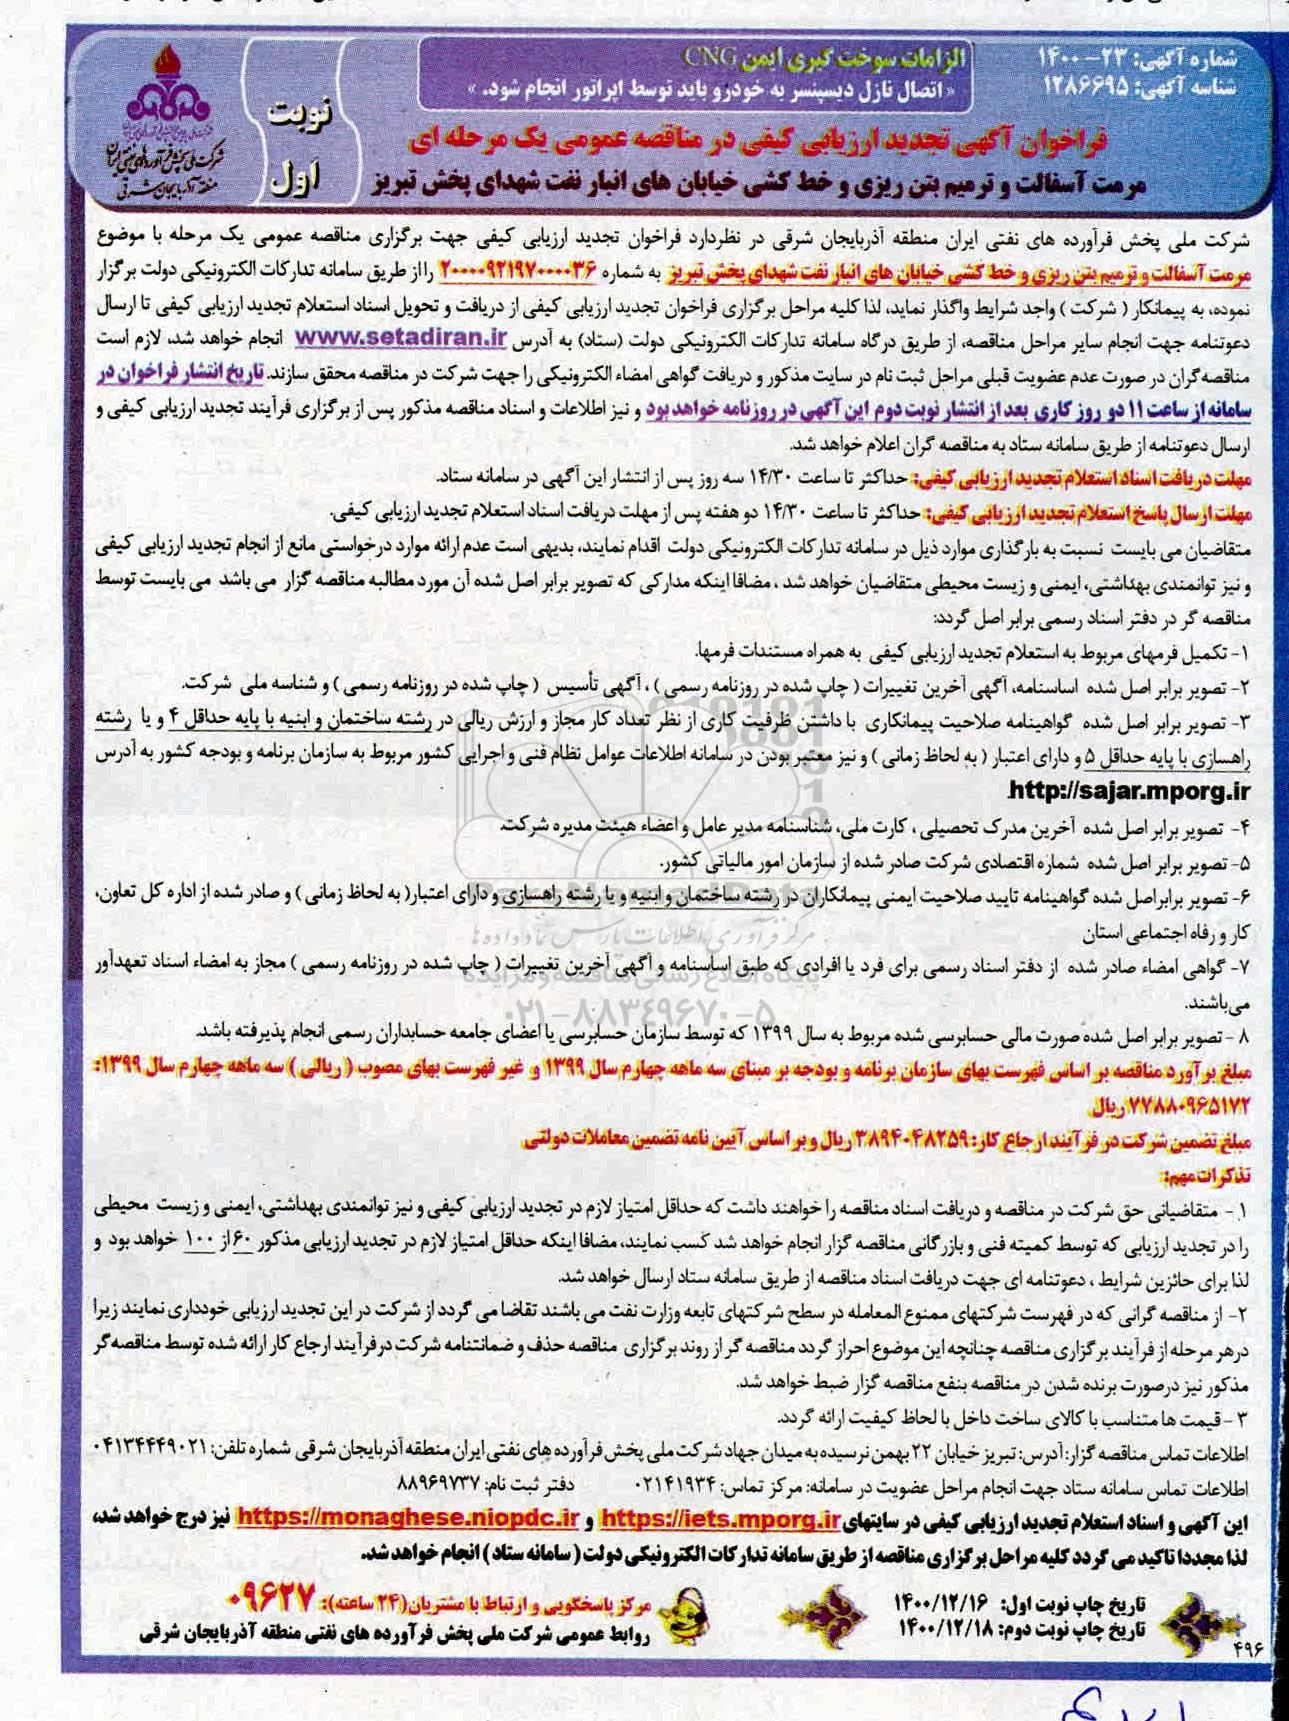 شماره آگهی: ۲۳-۱۴۰۰
شناسه آگهی: ۱۲۸۶۶۹۵
الزامات سوخت گیری ایمن CNG
«اتصال نازل دیسپنسر به خودرو باید توسط اپراتور انجام شود.»
نوبت
اول
شرکت ملی پخش فرآورده‌های نفتی ایران
منطقه آذربایجان شرقی
فراخوان آگهی تجدید ارزیابی کیفی در مناقصه عمومی یک مرحله ای
مرمت آسفالت و ترمیم بتن ریزی و خط کشی خیابان های انبار نفت شهدای پخش تبریز
شرکت ملی پخش فرآورده های نفتی ایران منطقه آذربایجان شرقی در نظردارد فراخوان تجدید ارزیابی کیفی جهت برگزاری مناقصه عمومی یک مرحله با موضوع
مرمت آسفالت و ترمیم بتن ریزی و خط کشی خیابان های انبار نفت شهدای پخش تبریز به شماره ۲۰۰۰۰۹۲۱۹۷۰۰۰۰۳۶ را از طریق سامانه تدارکات الکترونیکی دولت برگزار
نموده، به پیمانکار ( شرکت ) واجد شرایط واگذار نماید، لذا کلیه مراحل برگزاری فراخوان تجدید ارزیابی کیفی از دریافت و تحویل اسناد استعلام تجدید ارزیابی کیفی تا ارسال
دعوتنامه جهت انجام سایر مراحل مناقصه، از طریق درگاه سامانه تدارکات الکترونیکی دولت (ستاد) به آدرس www.setadiran.ir انجام خواهد شد، لازم است
مناقصه‌گران در صورت عدم عضویت قبلی مراحل ثبت نام در سایت مذکور و دریافت گواهی امضاء الکترونیکی را جهت شرکت در مناقصه محقق سازند. تاریخ انتشار فراخوان در
سامانه از ساعت ۱۱ دو روز کاری بعد از انتشار نوبت دوم این آگهی در روزنامه خواهد بود و نیز اطلاعات و اسناد مناقصه مذکور پس از برگزاری فرآیند تجدید ارزیابی کیفی و
ارسال دعوتنامه از طریق سامانه ستاد به مناقصه گران اعلام خواهد شد.
مهلت دریافت اسناد استعلام تجدید ارزیابی کیفی: حداکثر تا ساعت ۱۴/۳۰ سه روز پس از انتشار این آگهی در سامانه ستاد.
مهلت ارسال پاسخ استعلام تجدید ارزیابی کیفی: حداکثر تا ساعت ۱۴/۳۰ دو هفته پس از مهلت دریافت اسناد استعلام تجدید ارزیابی کیفی.
متقاضیان می بایست نسبت به بارگذاری موارد ذیل در سامانه تدارکات الکترونیکی دولت اقدام نمایند، بدیهی است عدم ارائه موارد درخواستی مانع از انجام تجدید ارزیابی کیفی
و نیز توانمندی بهداشتی، ایمنی و زیست محیطی متقاضیان خواهد شد ، مضافا اینکه مدارکی که تصویر برابر اصل شده آن مورد مطالبه مناقصه گزار می باشد می بایست توسط
مناقصه گر در دفتر اسناد رسمی برابر اصل گردد:
۱- تکمیل فرمهای مربوط به استعلام تجدید ارزیابی کیفی به همراه مستندات فرمها.
۲- تصویر برابر اصل شده اساسنامه، آگهی آخرین تغییرات ( چاپ شده در روزنامه رسمی ) ، آگهی تأسیس ( چاپ شده در روزنامه رسمی ) و شناسه ملی شرکت.
۳- تصویر برابر اصل شده گواهینامه صلاحیت پیمانکاری با داشتن ظرفیت کاری از نظر تعداد کار مجاز و ارزش ریالی در رشته ساختمان و ابنیه با پایه حداقل ۴ و یا رشته
راهسازی با پایه حداقل ۵ و دارای اعتبار ( به لحاظ زمانی ) و نیز معتبر بودن در سامانه اطلاعات عوامل نظام فنی و اجرایی کشور مربوط به سازمان برنامه و بودجه کشور به آدرس
http://sajar.mporg.ir
۴- تصویر برابر اصل شده آخرین مدرک تحصیلی ، کارت ملی، شناسنامه مدیر عامل و اعضاء هیئت مدیره شرکت.
۵- تصویر برابر اصل شده شماره اقتصادی شرکت صادر شده از سازمان امور مالیاتی کشور.
۶- تصویر برابراصل شده گواهینامه تایید صلاحیت ایمنی پیمانکاران در رشته ساختمان و ابنیه و یا رشته راهسازی و دارای اعتبار( به لحاظ زمانی ) و صادر شده از اداره کل تعاون،
کار و رفاه اجتماعی استان
۷- گواهی امضاء صادر شده از دفتر اسناد رسمی برای فرد یا افرادی که طبق اساسنامه و آگهی آخرین تغییرات ( چاپ شده در روزنامه رسمی ) مجاز به امضاء اسناد تعهدآور
می‌باشند.
۸ - تصویر برابر اصل شده صورت مالی حسابرسی شده مربوط به سال ۱۳۹۹ که توسط سازمان حسابرسی یا اعضای جامعه حسابداران رسمی انجام پذیرفته باشد.
مبلغ برآورد مناقصه بر اساس فهرست بهای سازمان برنامه و بودجه بر مبنای سه ماهه چهارم سال ۱۳۹۹ و غیر فهرست بهای مصوب ( ریالی ) سه ماهه چهارم سال ۱۳۹۹:
۷۷۸۸۰۹۶۵۱۷۲ ریال
مبلغ تضمین شرکت در فرآیند ارجاع کار: ۳۸۹۴۰۴۸۲۵۹ ریال و بر اساس آیین نامه تضمین معاملات دولتی
تذکرات مهم:
۱- متقاضیانی حق شرکت در مناقصه و دریافت اسناد مناقصه را خواهند داشت که حداقل امتیاز لازم در تجدید ارزیابی کیفی و نیز توانمندی بهداشتی، ایمنی و زیست محیطی
را در تجدید ارزیابی که توسط کمیته فنی و بازرگانی مناقصه گزار انجام خواهد شد کسب نمایند، مضافا اینکه حداقل امتیاز لازم در تجدید ارزیابی مذکور ۶۰ از ۱۰۰ خواهد بود و
لذا برای حائزین شرایط ، دعوتنامه ای جهت دریافت اسناد مناقصه از طریق سامانه ستاد ارسال خواهد شد.
۲- از مناقصه گرانی که در فهرست شرکتهای ممنوع المعامله در سطح شرکتهای تابعه وزارت نفت می باشند تقاضا می گردد از شرکت در این تجدید ارزیابی خودداری نمایند زیرا
درهر مرحله از فرآیند برگزاری مناقصه چنانچه این موضوع احراز گردد مناقصه گر از روند برگزاری مناقصه حذف و ضمانتنامه شرکت درفرآیند ارجاع کار ارائه شده توسط مناقصه‌گر
مذکور نیز درصورت برنده شدن در مناقصه بنفع مناقصه گزار ضبط خواهد شد.
۳ - قیمت ها متناسب با کالای ساخت داخل با لحاظ کیفیت ارائه گردد.
اطلاعات تماس مناقصه گزار: آدرس: تبریز خیابان ۲۲ بهمن نرسیده به میدان جهاد شرکت ملی پخش فرآورده های نفتی ایران منطقه آذربایجان شرقی شماره تلفن: ۰۴۱۳۴۴۴۹۰۲۱
اطلاعات تماس سامانه ستاد جهت انجام مراحل عضویت در سامانه: مرکز تماس: ۰۲۱۴۱۹۳۴ دفتر ثبت نام: ۸۸۹۶۹۷۳۷
این آگهی و اسناد استعلام تجدید ارزیابی کیفی در سایتهای https://iets.mporg.ir و https://monaghese.niopdc.ir نیز درج خواهد شد،
لذا مجددا تاکید می گردد کلیه مراحل برگزاری مناقصه از طریق سامانه تدارکات الکترونیکی دولت ( سامانه ستاد ) انجام خواهد شد.
تاریخ چاپ نوبت اول: ۱۴۰۰/۱۲/۱۶
تاریخ چاپ نوبت دوم: ۱۴۰۰/۱۲/۱۸
مرکز پاسخگویی و ارتباط با مشتریان(۲۴ ساعته): ۰۹۶۲۷
روابط عمومی شرکت ملی پخش فرآورده های نفتی منطقه آذربایجان شرقی
۴۹۶
مرکز فرآوری اطلاعات پارس نماد داده ها
پایگاه اطلاع رسانی مناقصه و مزایده
۰۲۱-۸۸۳۴۹۶۷۰-۵